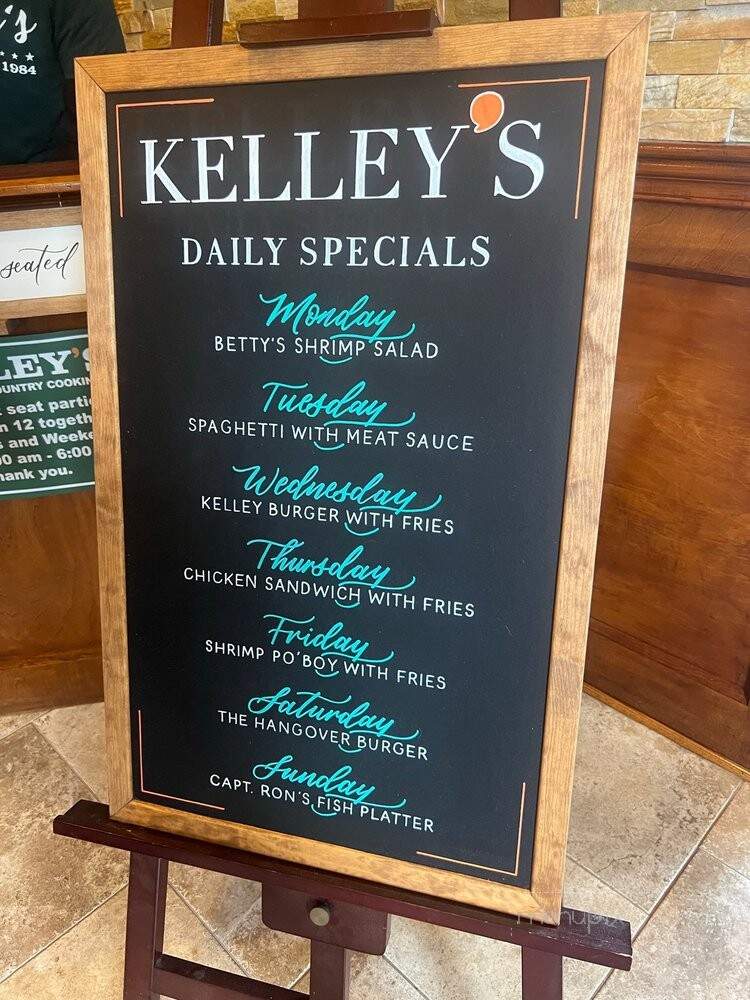 's
★ ★ ★
1984
KELLEY'S
DAILY SPECIALS
Monday
BETTY'S SHRIMP SALAD
Tuesday
SPAGHETTI WITH MEAT SAUCE
Wednesday
KELLEY BURGER WITH FRIES
Thursday
CHICKEN SANDWICH WITH FRIES
Friday
SHRIMP PO'BOY WITH FRIES
Saturday
THE HANGOVER BURGER
Sunday
CAPT. RON'S FISH PLATTER
seated
LEY'S
OUNTRY COOKIN
seat partie
n 12 togeth
s and Weeke
00 am - 6:00
hank you.